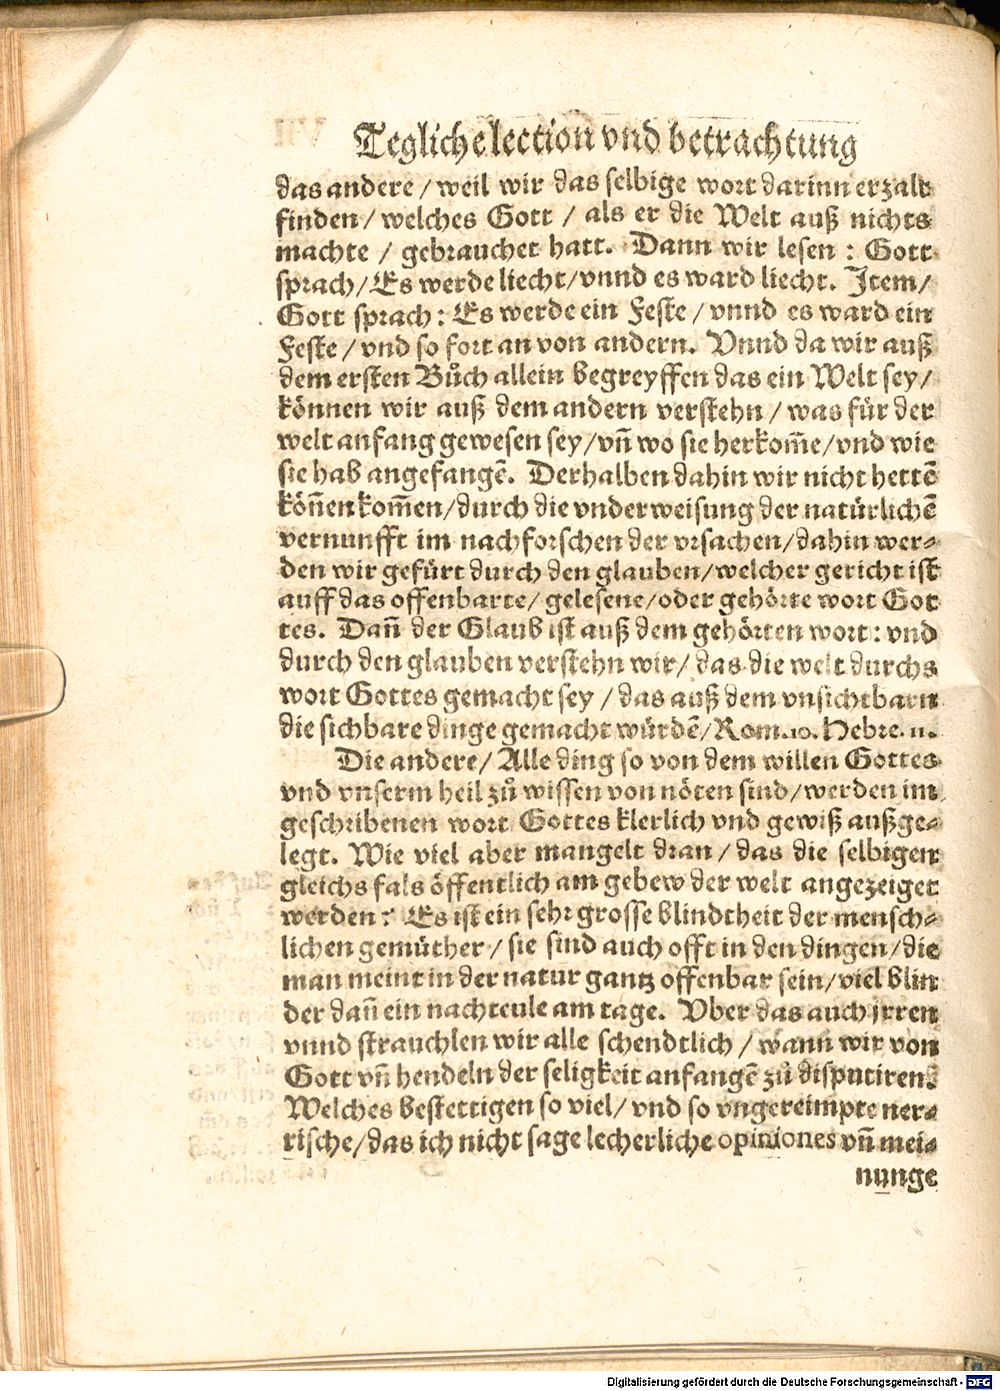 Tegliche lection vnd betrachtung
das andere / weil wir das selbige wort darinn erzalt
finden / welches Gott / als er die Welt auß nichts
machte / gebrauchet hatt. Dann wir lesen : Gott
sprach / Es werde liecht / vnnd es ward liecht. Item /
Gott sprach : Es werde ein Feste / vnnd es ward ein
Feste / vnd so fort an von andern. Vnnd da wir auß
dem ersten Bůch allein begreyffen das ein Welt sey /
können wir auß dem andern verstehn / was für der
welt anfang gewesen sey / vñ wo sie herkom̃e / vnd wie
sie hab angefangẽ. Derhalben dahin wir nicht hettẽ
köñen kom̃en / durch die vnderweisung der natürlichẽ
vernunfft im nachforschen der vrsachen / dahin wer-
den wir gefürt durch den glauben / welcher gericht ist
auff das offenbarte / gelesene / oder gehörte wort Got
tes. Dañ der Glaub ist auß dem gehörten wort : vnd
durch den glauben verstehn wir / das die welt durchs
wort Gottes gemacht sey / das auß dem vnsichtbarn
die sichbare dinge gemacht würdẽ / Rom. 10. Hebre. 11.
Die andere / Alle ding so von dem willen Gottes
vnd vnserm heil zů wissen von nöten sind / werden im
geschribenen wort Gottes klerlich vnd gewiß außge-
legt. Wie viel aber mangelt dran / das die selbigen
gleichsfals öffentlich am gebew der welt angezeiget
werden ? Es ist ein sehr grosse blindtheit der mensch-
lichen gemüther / sie sind auch offt in den dingen / die
man meint in der natur gantz offenbar sein / viel blin
der dañ ein nachteule am tage. Vber das auch jrren
vnnd strauchlen wir alle schendtlich / wann wir von
Gott vñ hendeln der seligkeit anfangẽ zů disputiren.
Welches bestettigen so viel / vnd so vngereimpte ner-
rische / das ich nicht sage lecherliche opiniones vñ mei-
nunge
Digitalisierung gefördert durch die Deutsche Forschungsgemeinschaft - DFG